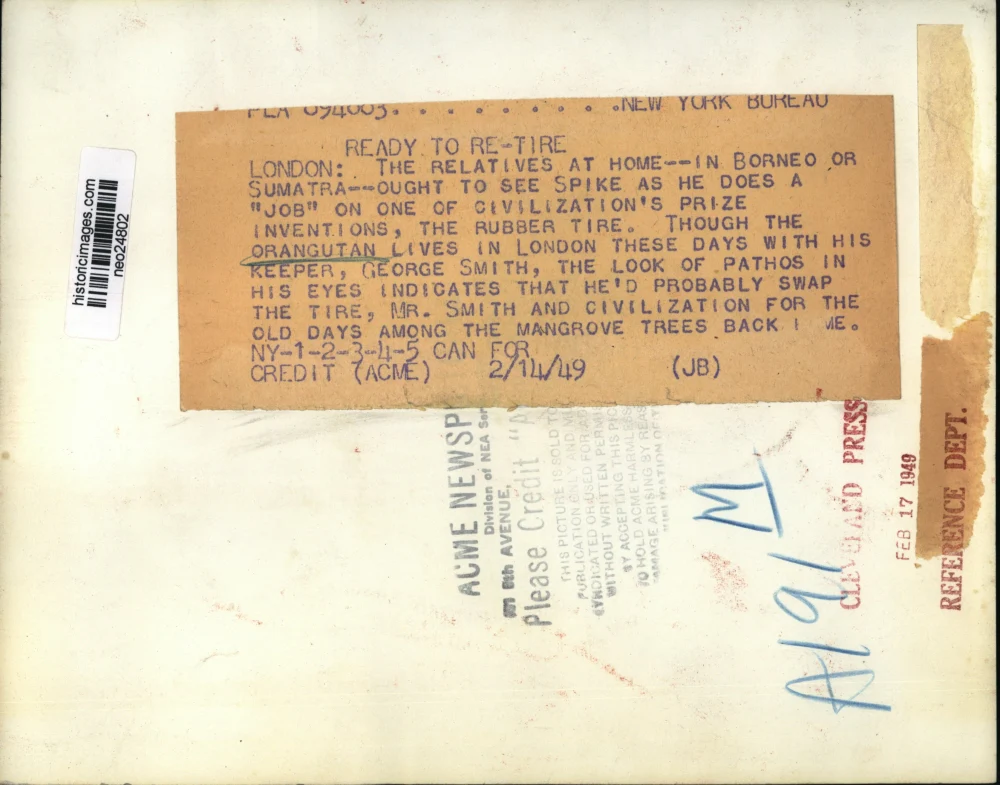 NEW YORK BUREAU
READY TO RE-TIRE
LONDON: THE RELATIVES AT HOME--IN BORNEO OR
SUMATRA--OUGHT TO SEE SPIKE AS HE DOES A
"JOB" ON ONE OF CIVILIZATION'S PRIZE
INVENTIONS, THE RUBBER TIRE. THOUGH THE
ORANGUTAN LIVES IN LONDON THESE DAYS WITH HIS
KEEPER, GEORGE SMITH, THE LOOK OF PATHOS IN
HIS EYES INDICATES THAT HE'D PROBABLY SWAP
THE TIRE, MR. SMITH AND CIVILIZATION FOR THE
OLD DAYS AMONG THE MANGROVE TREES BACK
NY-1-2-3-4-5 CAN FOR
CREDIT (ACME) 2/14/49 (JB)
historicimages.com
neo24802
ACME NEWSP
Division of NEA Ser
8th AVENUE,
Please Credit "A
THIS PICTURE IS SOLD TO
PUBLICATION ONLY AND
SYNDICATED OR USED FOR AD
WITHOUT WRITTEN PERM
BY ACCEPTING THIS PIC
TO HOLD ACME HARMLESS
DAMAGE ARISING BY REAS
A191 M
CLEVELAND PRESS
FEB 17 1949
REFERENCE DEPT.